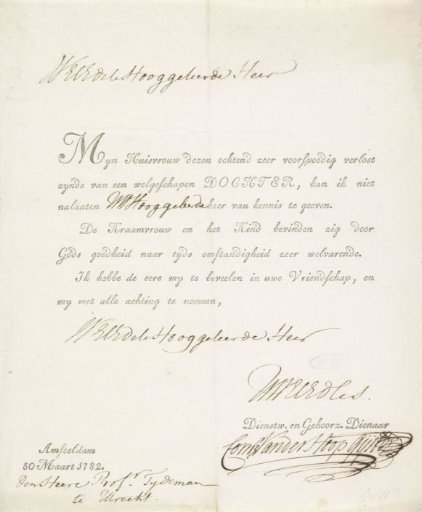 WelEdele Hooggeleerde Heer
Myn Huisvrouw dezen ochtend zeer voorspoedig verlost
zynde van een welgeschapen DOCHTER, kan ik niet
nalaaten Hooggeleerde heer van kennis te geeven.
De Kraamvrouw en het Kind bevinden zig door
Gods goedheid naar tyds omstandigheid zeer welvarende.
Ik hebbe de eere my te beveelen in uwe Vriendschap, en
my met alle achting te noemen,
WelEdele Hooggeleerde Heer
Dienstw. en Gehoorz. Dienaar
Corn. van der Hoop
Amsteldam
30 Maart 1782.
den Heere Profr. Tydeman
te Utrecht.